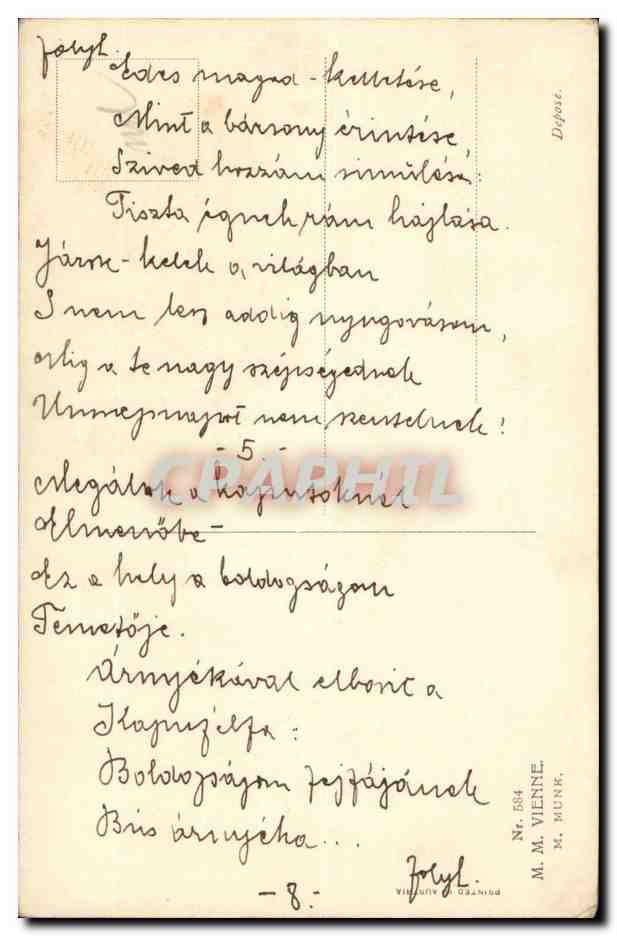 folyt.
Édes magad-kelletése,
Mint a bársony érintése,
Szived hozzám simulása:
Tiszta égnek rám hajlása.
Járok-kelek a világban
S nem lesz addig nyugovásom,
Mig a te nagy szépségednek
Ünnepnapot nem szentelnek!
-5.-
Megálok a kaputoknál
Elmenőbe-
Ez a hely a boldogságom
Temetője.
Árnyékával elborit a
Kapufélfa:
Boldogságom fejfájának
Bús árnyéka...
folyt.
-8.-
Depose.
Nr. 584
M. M. VIENNE.
M. MUNK.
PRINTED IN AUSTRIA
CPAPHIL